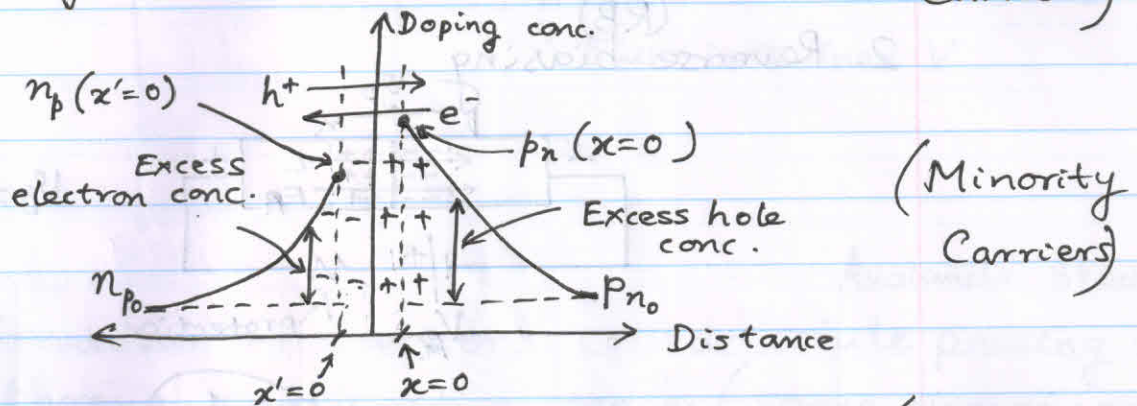 Doping conc.
n_p (x'=0)
h⁺
e⁻
p_n (x=0)
Excess
electron conc.
- + +
- - + +
- - + +
- - + +
Excess hole
conc.
(Minority
Carriers)
n_p₀
p_n₀
Distance
x'=0
x=0